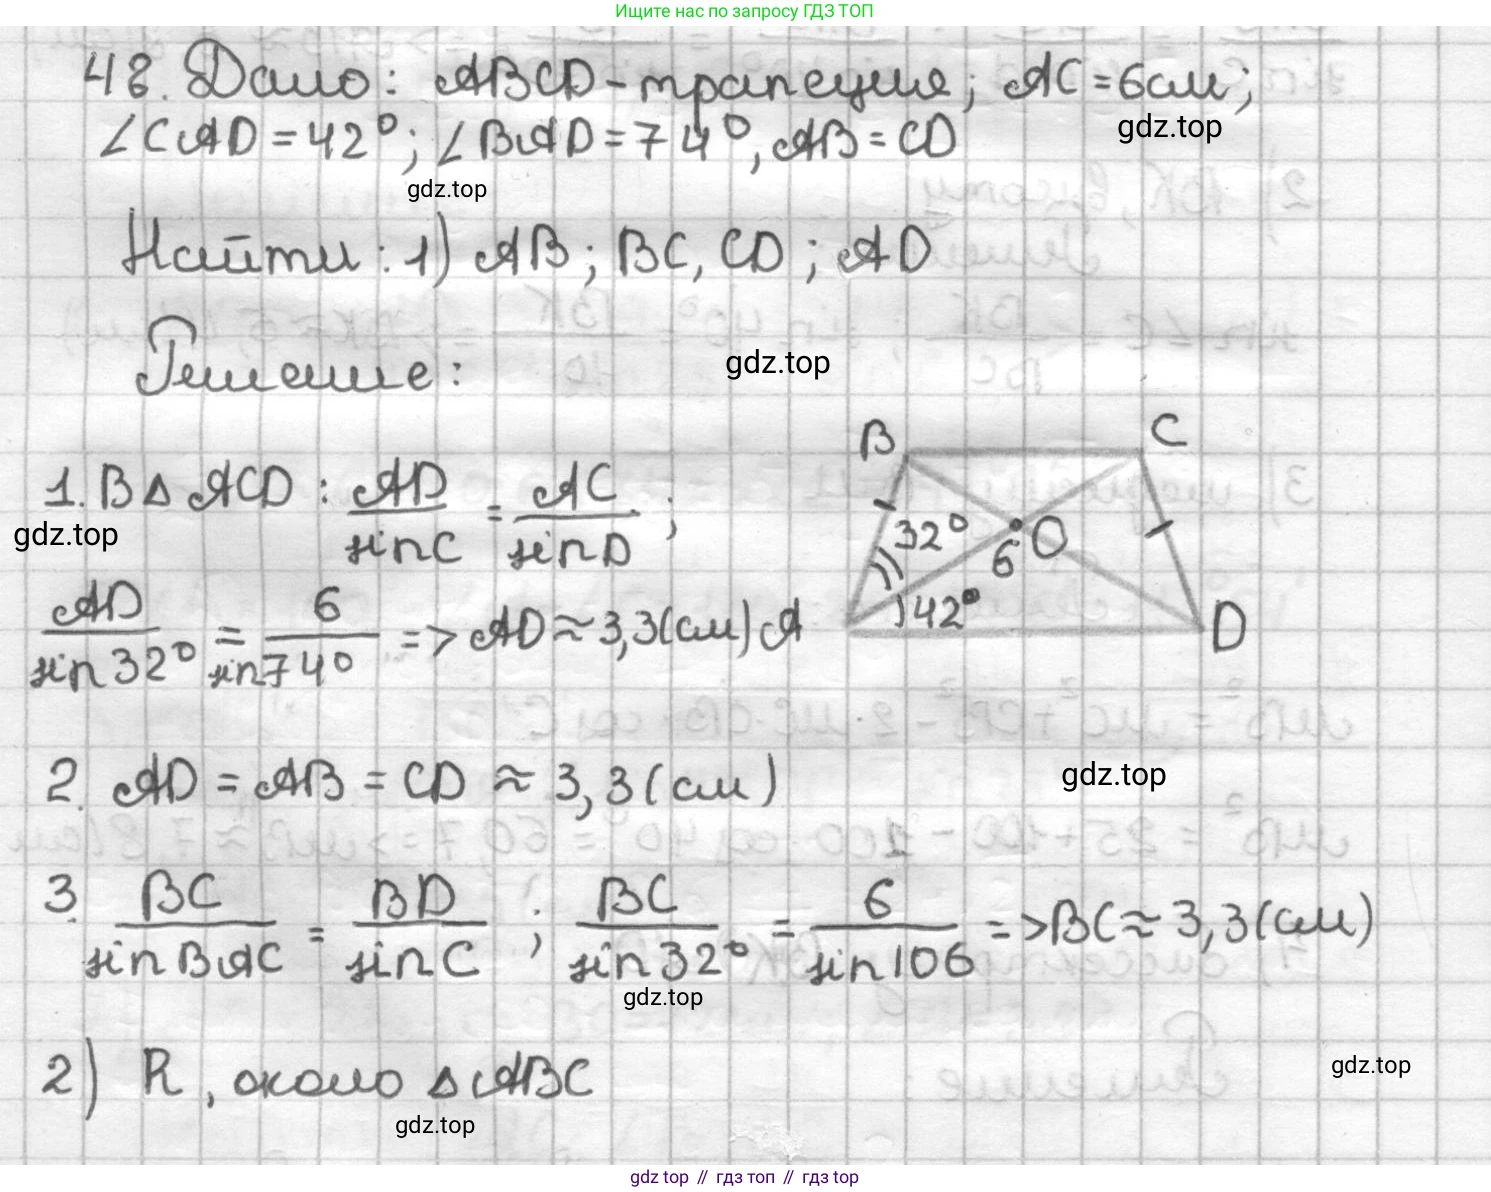 Ищите нас по запросу ГДЗ ТОП
48. Дано: ABCD - трапеция; AC = 6 см;
gdz.top
∠CAD = 42°; ∠BAD = 74°, AB = CD
gdz.top
Найти: 1) AB; BC, CD; AD
Решение:
gdz.top
B C
1. В △ ACD: AD/sin C = AC/sin D;
gdz.top
32° 6 O
42° D
AD/sin 32° = 6/sin 74° => AD ≈ 3,3 (см) A
2. AD = AB = CD ≈ 3,3 (см)
gdz.top
3. BC/sin BAC = BD/sin C; BC/sin 32° = 6/sin 106 => BC ≈ 3,3 (см)
gdz.top
2) R, около △ ABC
gdz.top
gdz.top
gdz top // гдз топ // гдз top